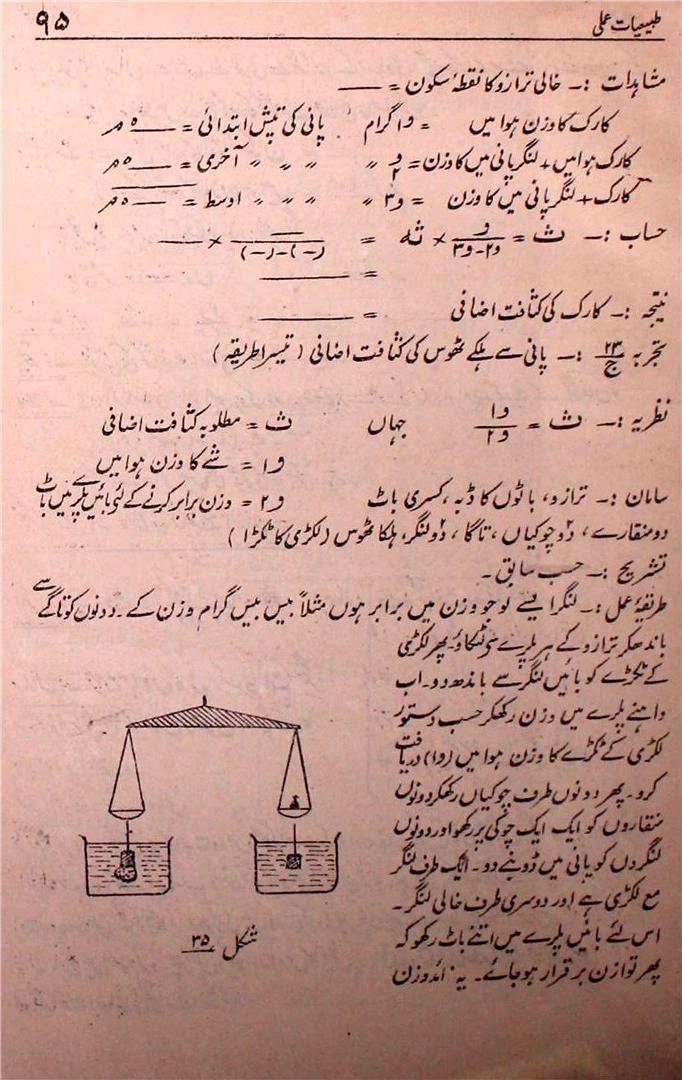 طبیعیات عملی ۹۵
مشاہدات :۔ خالی ترازو کا نقطۂ سکون = ——
کارک کا وزن ہوا میں = و۱ گرام پانی کی تپش ابتدائی = ——°م
کارک ہوا میں + لنگر پانی میں کا وزن = و۲ 〃 〃 〃 〃 آخری = ——°م
کارک + لنگر پانی میں کا وزن = و۳ 〃 〃 〃 〃 اوسط = ——°م
حساب :۔ ث = و / و۲-و۳ × ثہ = —— / (-)-(-) × ——
= ————
نتیجہ :۔ کارک کی کثافت اضافی = ————
تجربہ ۲۳/ج :۔ پانی سے ہلکے ٹھوس کی کثافت اضافی (تیسرا طریقہ)
نظریہ :۔ ث = و۱ / و۲ جہاں ث = مطلوبہ کثافت اضافی
و۱ = شے کا وزن ہوا میں
سامان :۔ ترازو، باٹوں کا ڈبہ، کسری باٹ و۲ = وزن برابر کرنے کے لئے بائیں پلڑے میں باٹ
دو منقارے، دو چوکیاں، تاگا، دو لنگر، ہلکا ٹھوس (لکڑی کا ٹکڑا)
تشریح :۔ حسب سابق۔
طریقۂ عمل :۔ لنگر ایسے لو جو وزن میں برابر ہوں مثلاً بیس بیس گرام وزن کے۔ دونوں کو تاگے سے
باندھکر ترازو کے ہر پلڑے سے لٹکاؤ۔ پھر لکڑی
کے ٹکڑے کو بائیں لنگر سے باندھ دو۔ اب
داہنے پلڑے میں وزن رکھکر حسب دستور
لکڑی کے ٹکڑے کا وزن ہوا میں (و۱) دریافت
کرو۔ پھر دونوں طرف چوکیاں رکھکر دونوں
منقاروں کو ایک ایک چوکی پر رکھو اور دونوں
لنگروں کو پانی میں ڈوبنے دو۔ ایک طرف لنگر
مع لکڑی ہے اور دوسری طرف خالی لنگر۔
اس لئے بائیں پلڑے میں اتنے باٹ رکھو کہ
پھر توازن برقرار ہو جائے۔ یہ زائد وزن
شکل ۳۵